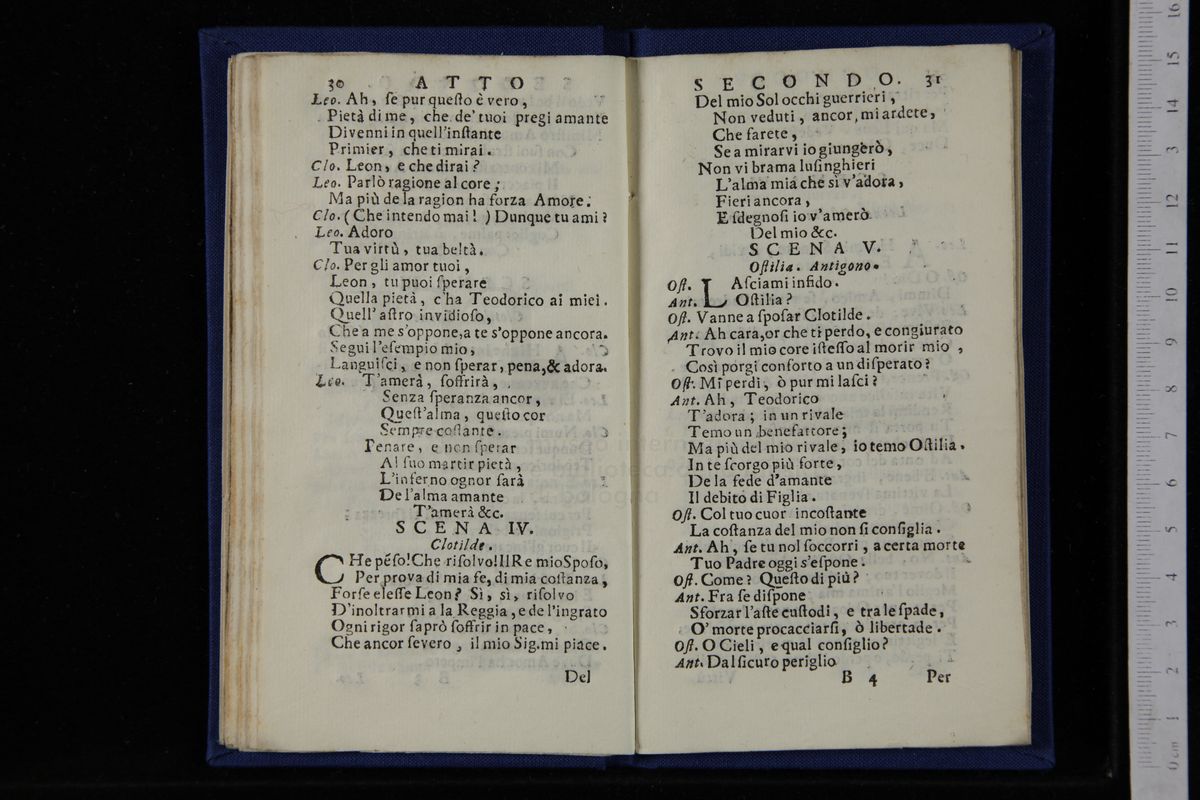 30 ATTO
Leo. Ah, ſe pur queſto è vero,
Pietà di me, che de' tuoi pregi amante
Divenni in quell'inſtante
Primier, che ti mirai.
Clo. Leon, e che dirai?
Leo. Parlò ragione al core;
Ma più de la ragion ha forza Amore.
Clo. (Che intendo mai! ) Dunque tu ami?
Leo. Adoro
Tua virtù, tua beltà.
Clo. Per gli amor tuoi,
Leon, tu puoi ſperare
Quella pietà, c'ha Teodorico ai miei.
Quell' aſtro invidioſo,
Che a me s'oppone, a te s'oppone ancora.
Segui l'eſempio mio,
Languiſci, e non ſperar, pena, & adora.
Leo. T'amerà, ſoffrirà,
Senza ſperanza ancor,
Queſt'alma, queſto cor
Sempre coſtante.
Penare, e non ſperar
Al ſuo martir pietà,
L'inferno ognor ſarà
De l'alma amante
T'amerà &c.
SCENA IV.
Clotilde.
CHe pẽſo! Che riſolvo! Il Re mio Spoſo,
Per prova di mia fe, di mia coſtanza,
Forſe eleſſe Leon? Sì, sì, riſolvo
D'inoltrarmi a la Reggia, e de l'ingrato
Ogni rigor ſaprò ſoffrir in pace,
Che ancor ſevero, il mio Sig. mi piace.
Del
SECONDO. 31
Del mio Sol occhi guerrieri,
Non veduti, ancor, mi ardete,
Che farete,
Se a mirarvi io giungerò,
Non vi brama luſinghieri
L'alma mia che sì v'adora,
Fieri ancora,
E ſdegnoſi io v'amerò.
Del mio &c.
SCENA V.
Oſtilia. Antigono.
Oſt. LAſciami infido.
Ant. Oſtilia?
Oſt. Vanne a ſpoſar Clotilde.
Ant. Ah cara, or che ti perdo, e congiurato
Trovo il mio core iſteſſo al morir mio,
Così porgi conforto a un diſperato?
Oſt. Mi perdi, ò pur mi laſci?
Ant. Ah, Teodorico
T'adora; in un rivale
Temo un benefattore;
Ma più del mio rivale, io temo Oſtilia.
In te ſcorgo più forte,
De la fede d'amante
Il debito di Figlia.
Oſt. Col tuo cuor incoſtante
La coſtanza del mio non ſi conſiglia.
Ant. Ah, ſe tu nol ſoccorri, a certa morte
Tuo Padre oggi s'eſpone.
Oſt. Come? Queſto di più?
Ant. Fra ſe diſpone
Sforzar l'aſte cuſtodi, e tra le ſpade,
O' morte procacciarſi, ò libertade.
Oſt. O Cieli, e qual conſiglio?
Ant. Dal ſicuro periglio
B 4 Per